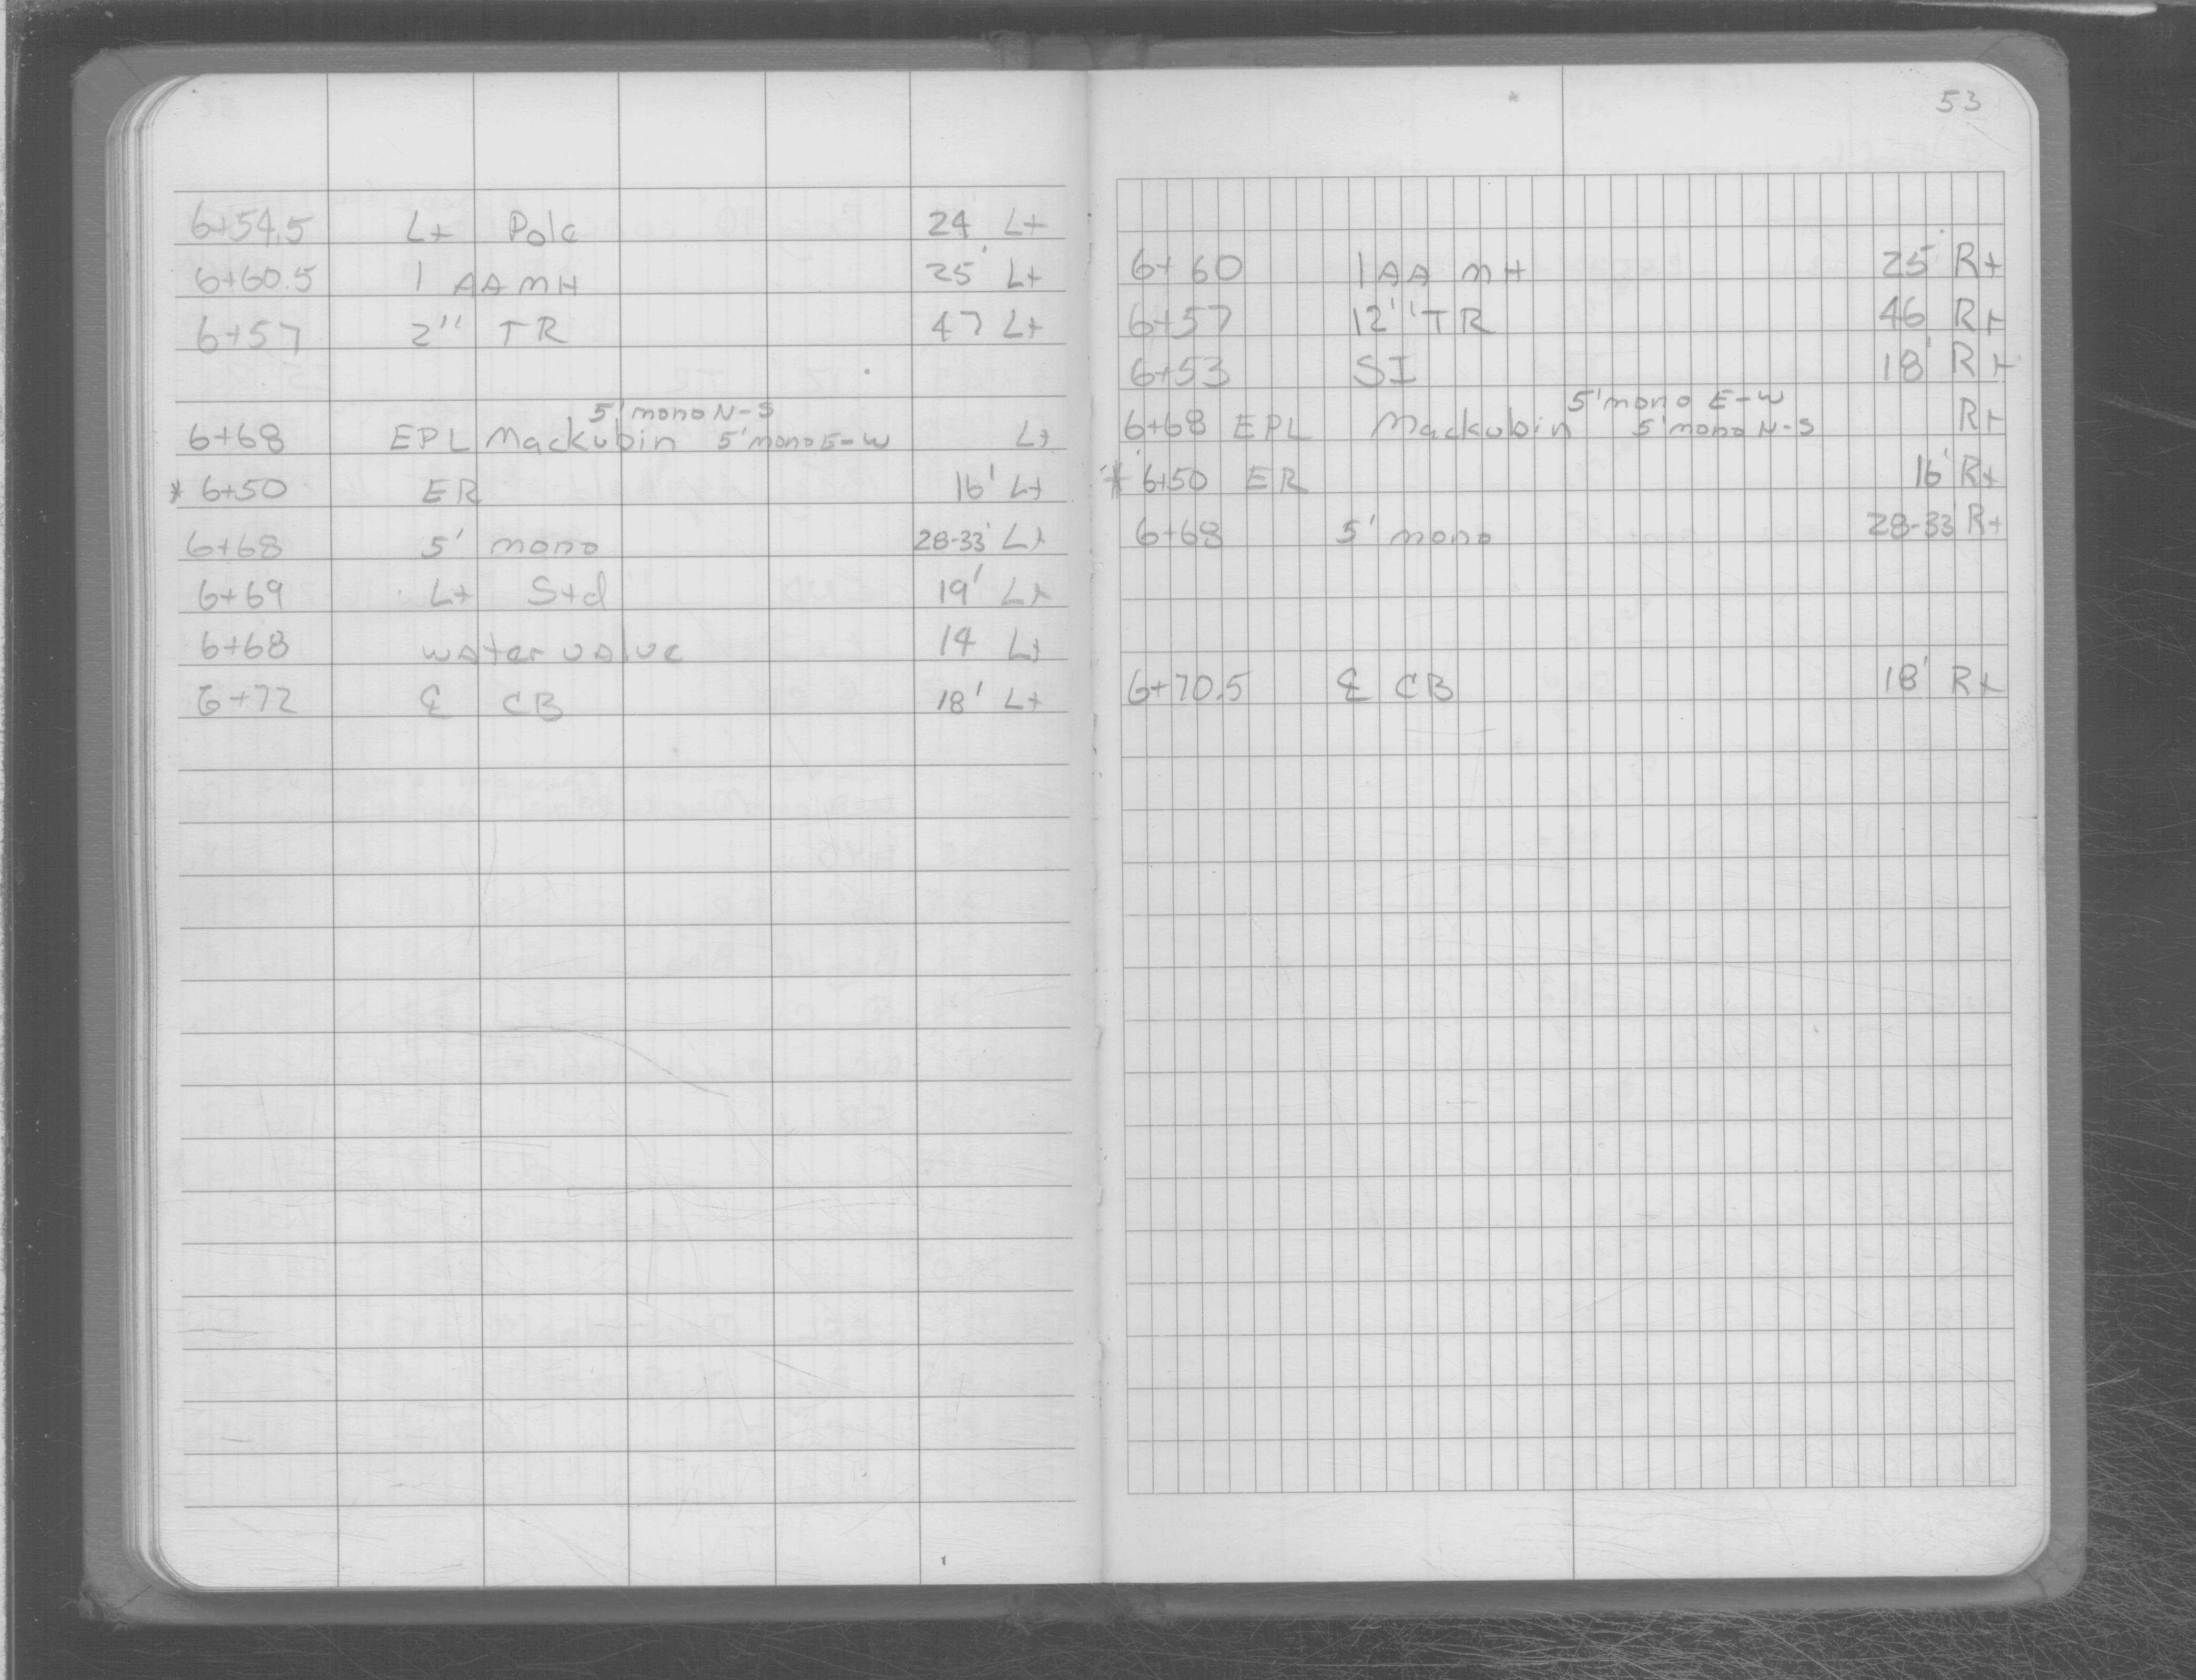 6+54.5 Lt Pole 24 Lt
6+60.5 1 AA MH 25' Lt
6+57 2" TR 47 Lt
5' mono N-S
6+68 EPL Mackubin 5' mono E-W Lt
* 6+50 ER 16' Lt
6+68 5' mono 28-33' Lt
6+69 Lt Std 19' Lt
6+68 water valve 14 Lt
6+72 ℄ CB 18' Lt
53
6+60 1 AA MH 25' Rt
6+57 12" TR 46 Rt
6+53 SI 18' Rt
5' mono E-W
6+68 EPL Mackubin 5' mono N-S Rt
* 6+50 ER 16' Rt
6+68 5' mono 28-33 Rt
6+70.5 ℄ CB 18' Rt